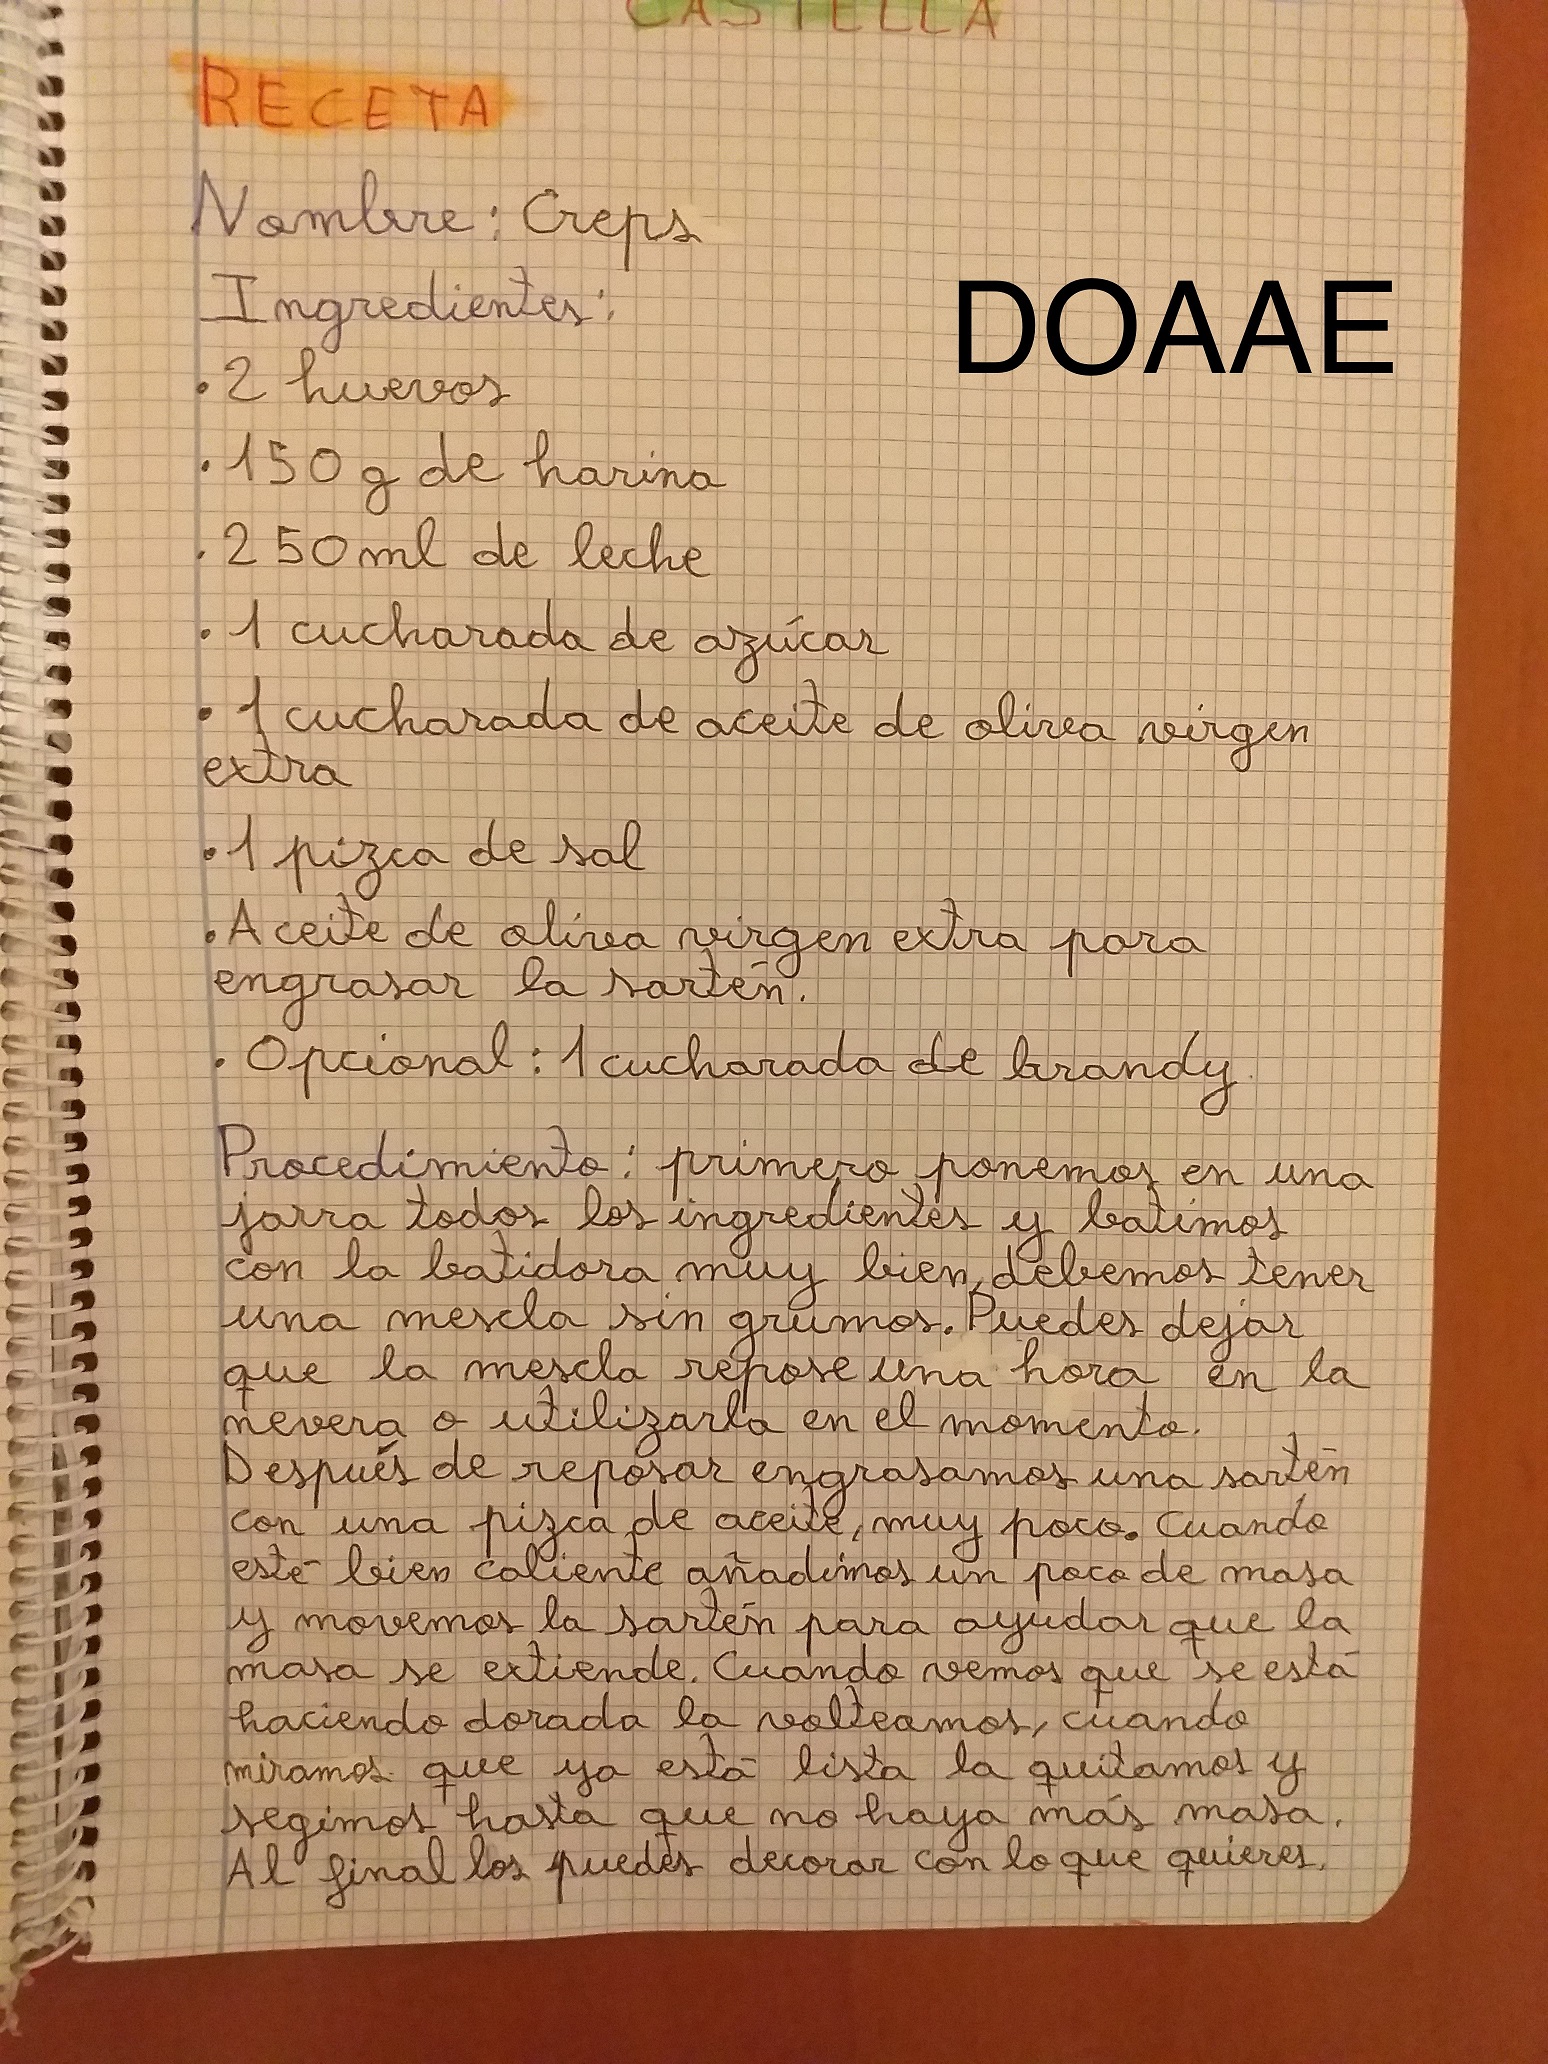 CASTELLA
RECETA
Nombre: Creps
Ingredientes:
DOAAE
• 2 huevos
• 150 g de harina
• 250 ml de leche
• 1 cucharada de azúcar
• 1 cucharada de aceite de oliva virgen
extra
• 1 pizca de sal
• Aceite de oliva virgen extra para
engrasar la sartén.
• Opcional: 1 cucharada de brandy.
Procedimiento: primero ponemos en una
jarra todos los ingredientes y batimos
con la batidora muy bien, debemos tener
una mescla sin grumos. Puedes dejar
que la mescla repose una hora en la
nevera o utilizarla en el momento.
Después de reposar engrasamos una sartén
con una pizca de aceite, muy poco. Cuando
esté bien caliente añadimos un poco de masa
y movemos la sartén para ayudar que la
masa se extiende. Cuando vemos que se está
haciendo dorada la volteamos, cuando
miramos que ya está lista la quitamos y
segimos hasta que no haya más masa.
Al final los puedes decorar con lo que quieres.